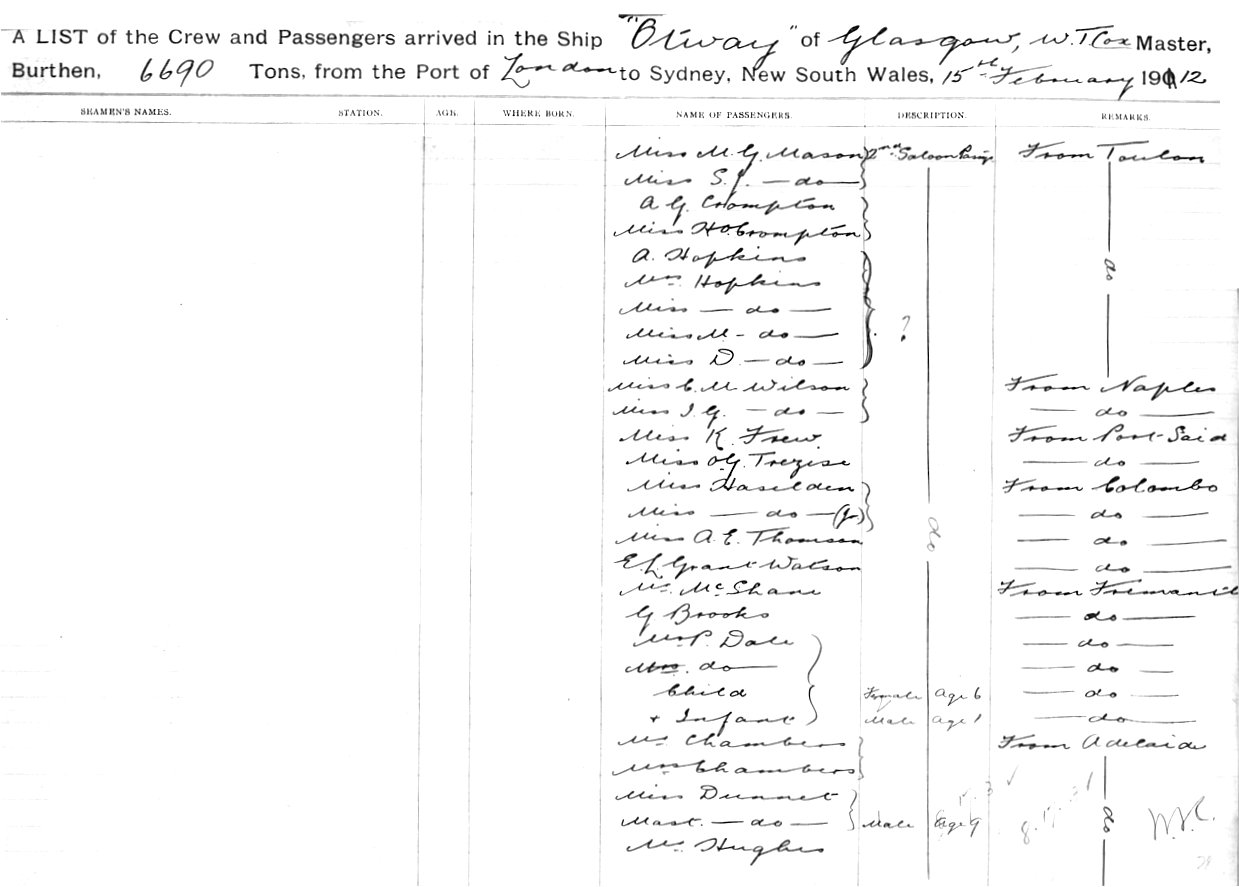 A LIST of the Crew and Passengers arrived in the Ship "Otway" of Glasgow, W.T. Cox Master,
Burthen, 6690 Tons, from the Port of London to Sydney, New South Wales, 15th February 1912
SEAMEN'S NAMES. STATION. AGE. WHERE BORN. NAME OF PASSENGERS. DESCRIPTION. REMARKS.
Miss M. G. Mason 2nd Saloon From Toulon
Miss S. J. — do —
A G. Crompton
Miss H. Crompton
A. Hopkins do
Mrs Hopkins
Miss — do —
Miss M — do — ?
Miss D. — do —
Miss C. M. Wilson From Naples
Miss J. G. — do — — do —
Miss K. Frew. From Port-Said
Miss O. G. Trezise — do —
Miss Haselden From Colombo
Miss — do — (Jr) — do —
Miss A. E. Thomson do — do —
E. L. Grant Watson — do —
Mr. McShane From Fremantle
G Brooks — do —
Mr P. Dale — do —
Mrs. do — — do —
Child Female Age 6 — do —
+ Infant Male Age 1 — do —
Mr Chambers From Adelaide
Mrs Chambers
Miss Dunnet
Mast. — do — Male Age 9 do
Mr Hughes